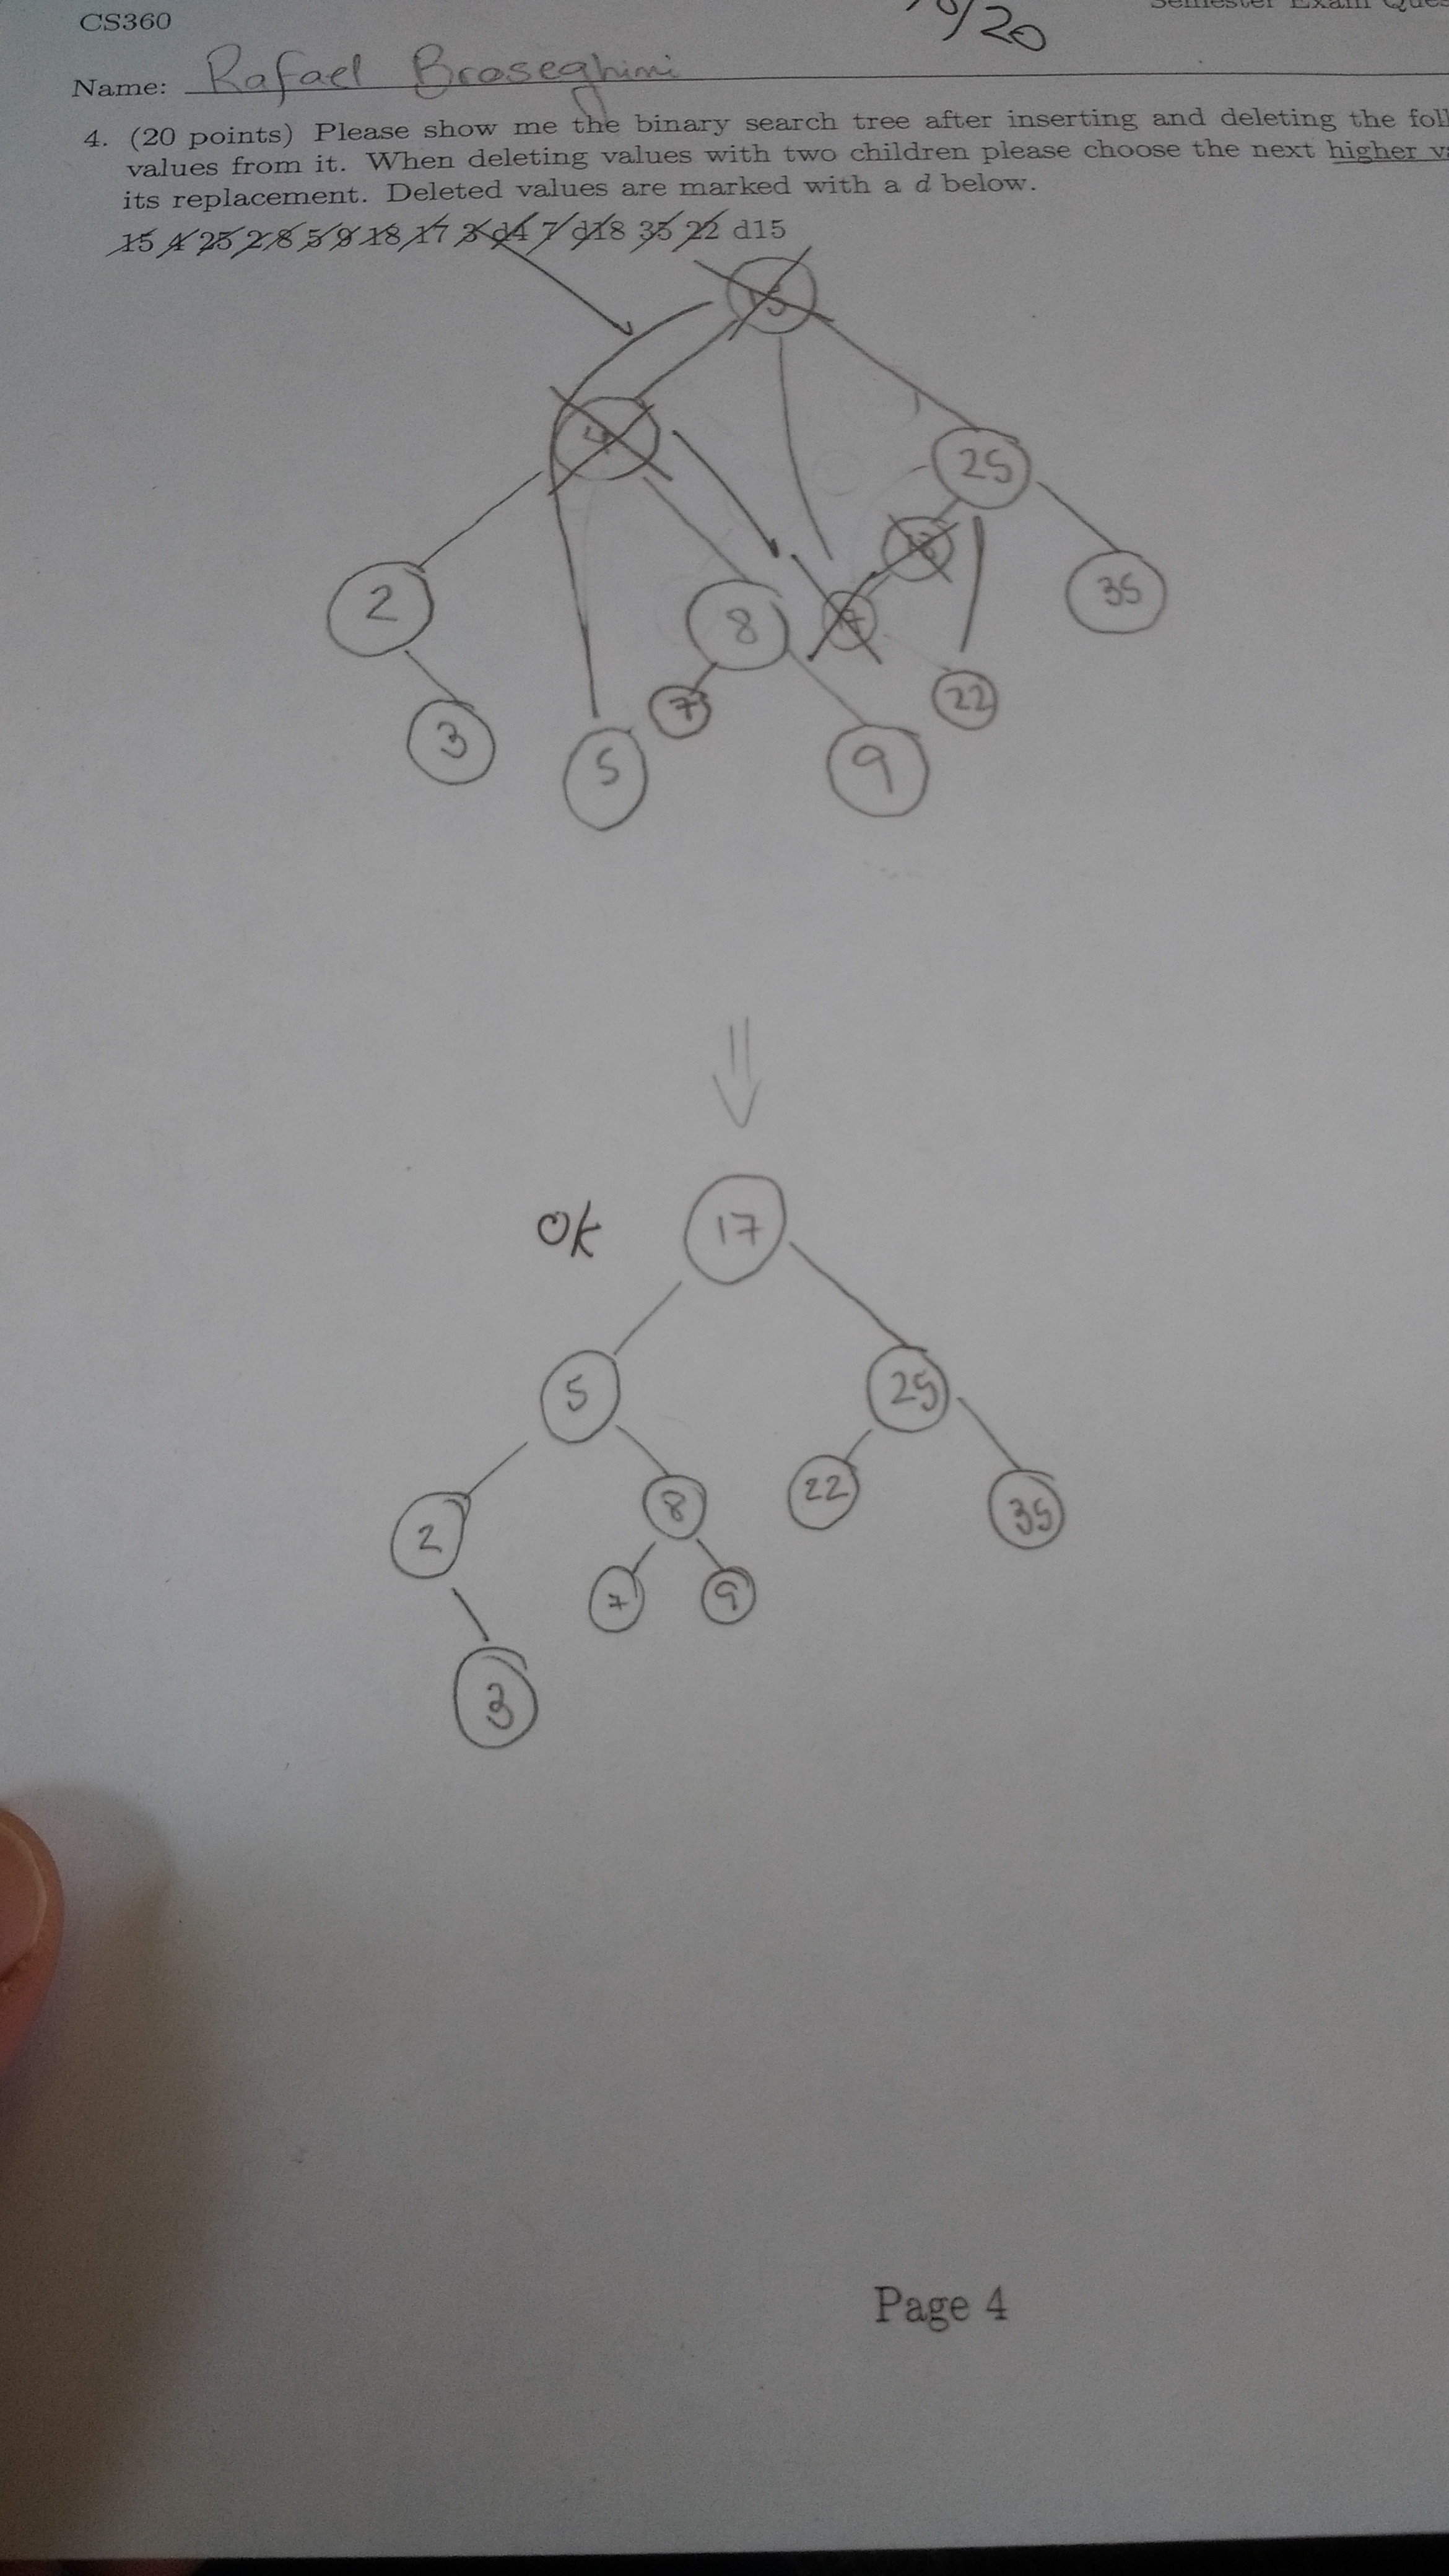 CS360
Semester Exam
/20
Name: Rafael Braseghini
4. (20 points) Please show me the binary search tree after inserting and deleting the
values from it. When deleting values with two children please choose the next higher
its replacement. Deleted values are marked with a d below.
15 4 25 2 8 5 9 18 17 3 d4 7 d18 35 22 d15
15
4 25
18
2 8 17 35
3 7 22
5 9
ok 17
5 25
2 8 22 35
7 9
3
Page 4